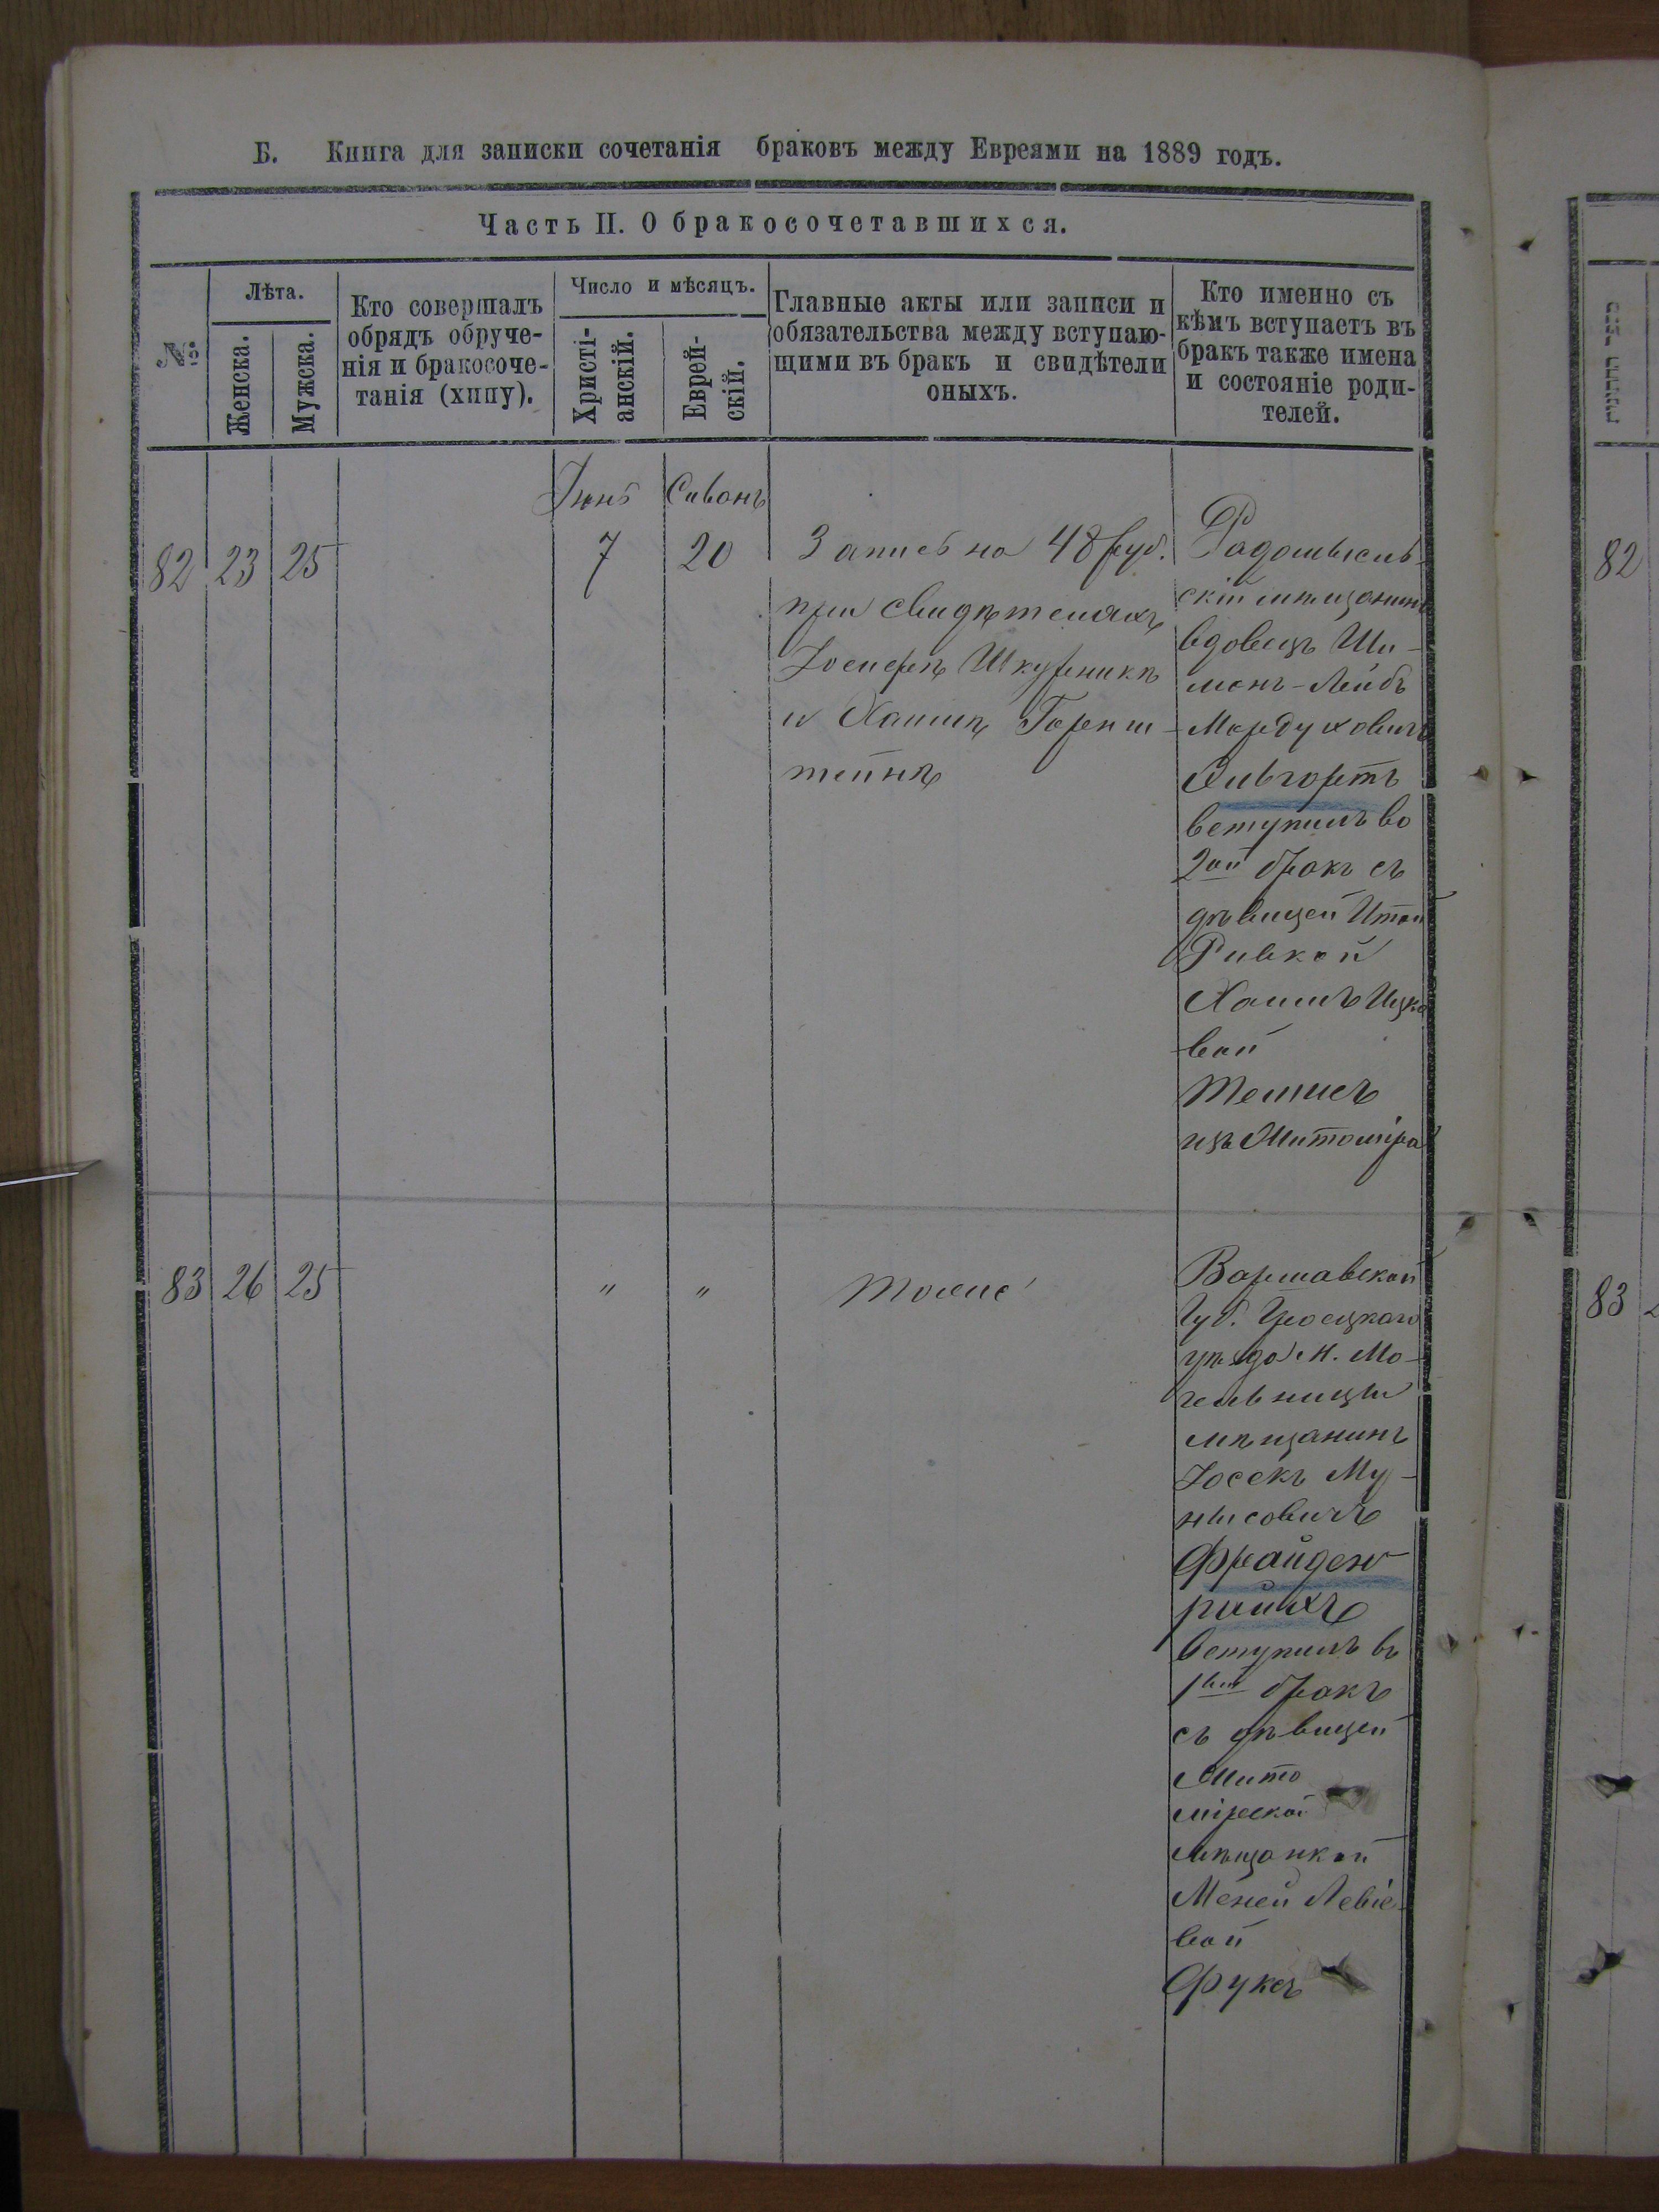 Б. Книга для записки сочетанія браковъ между Евреями на 1889 годъ.
Часть II. О бракосочетавшихся.
№
Лѣта.
Женска.
Мужска.
Кто совершалъ
обрядъ обруче-
нія и бракосоче-
танія (хипу).
Число и мѣсяцъ.
Христі-
анскій.
Еврей-
скій.
Главные акты или записи и
обязательства между вступаю-
щими въ бракъ и свидѣтели
оныхъ.
Кто именно съ
кѣмъ вступаетъ въ
бракъ также имена
и состояніе роди-
телей.
Іюнь Сивонъ
82 23 25 7 20
Запись на 48 руб.
при свидѣтеляхъ
Іосифѣ Шкурникѣ
и Хаимѣ Горенш-
тейнѣ
Радомысль-
скій мѣщанинъ
вдовецъ Ши-
монъ-Лейбъ
Мордуховичъ
Ливгортъ
вступилъ во
2ой бракъ съ
дѣвицей Итой
Ривкой
Хаимъ Ицко
вой
изъ Житоміра
83 26 25 " " Тоже
Варшавской
Губ. Гроецкаго
уѣзда м. Мо-
гельницы
мѣщанинъ
Іосекъ Му-
нысовичъ
Фрайден-
райхъ
вступилъ въ
1ый бракъ
съ дѣвицей
Жито
мірской
мѣщанкой
Меней Левіе-
вой
Фуксъ
82
83